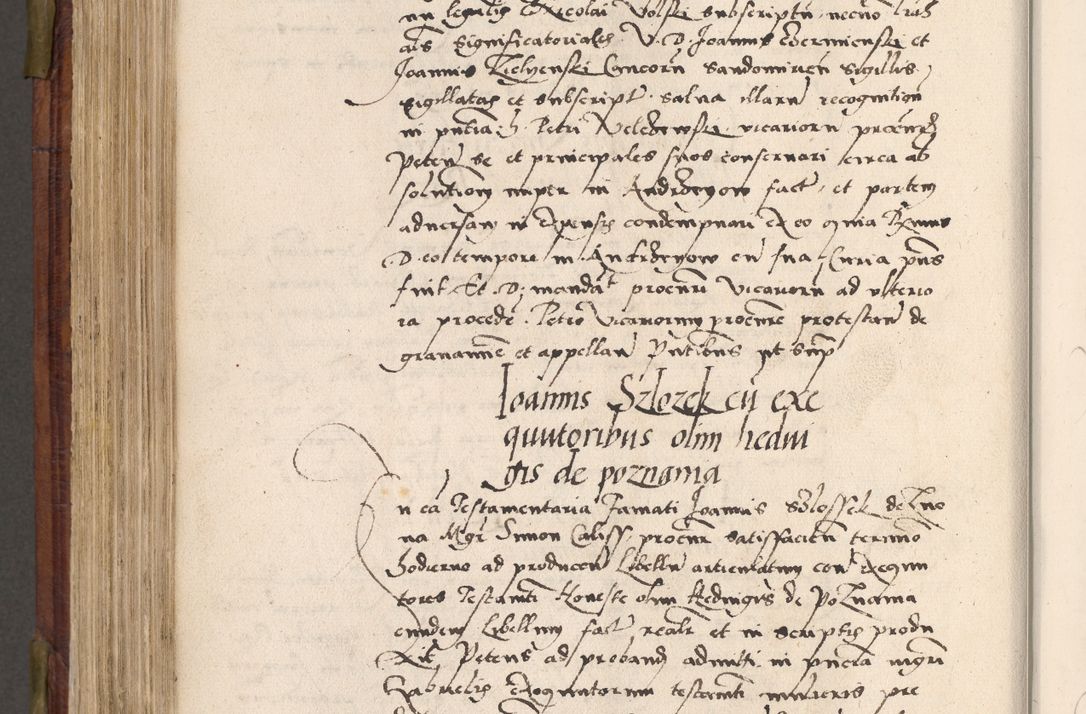 nu legalis Nicolai Volski subscriptũ necnõ lrãs
als significatoriales V. D. Joannis et
Joannis Kielyenski Concorũ Sandomireñ sigillis
sigillatas et subscript salva illarũ recognition
in pñtia D. Petri vicariorũ procur
Peteñ se et principales suos conservari circa ab
solution nuper in Andrzeyow fact et partem
adversam in expensis condempnari Ex eo qnia
D. eo tempore in Andrzeyow cũ sua Curia pñs
fuit Et D. mandat procurri vicariorũ ad ulterio
ra procedẽ Petro vicariorum procurre protestañ de
gravamine et appellañ Pñtibus ut supr
Joannis Szlozek cũ exe
quutoribus olim hedvi
gis de poznania
n cã Testamentaria Famati Joannis Szlossek de Zno
na Mgr Simon Caliss procur satisfacieñ termino
hodierno ad produceñ Libellũ articulatum con Exequu
tores Testamti Honeste olim Hedvigis de PoZnania
eundem Libellum fact realr et in scriptis produ
xit Petens ad proband admitti in pñcia mgri
Gabrielis Exequutorum testamti mulieris pre